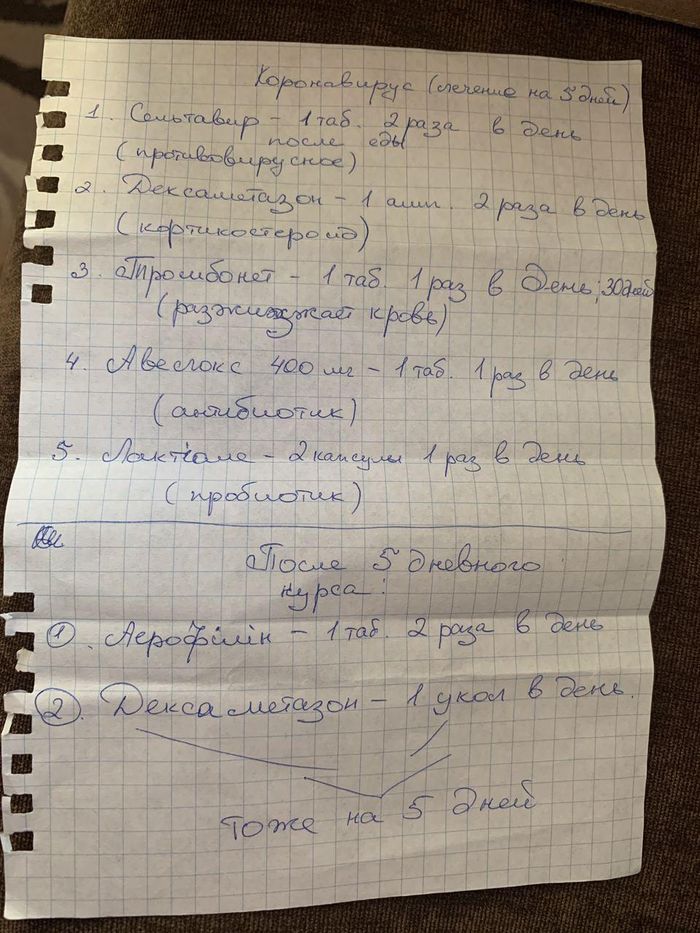 Коронавирус (лечение на 5 дней)
1. Сельтавир - 1 таб. 2 раза в день
после еды
(противовирусное)
2. Дексаметазон - 1 амп. 2 раза в день
(кортикостероид)
3. Тромбонет - 1 таб. 1 раз в день; 30 дней
(разжижает кровь)
4. Авелокс 400 мг - 1 таб. 1 раз в день
(антибиотик)
5. Лактіале - 2 капсулы 1 раз в день
(пробиотик)
После 5 дневного
курса:
1. Аерофілін - 1 таб. 2 раза в день
2. Дексаметазон - 1 укол в день.
тоже на 5 дней